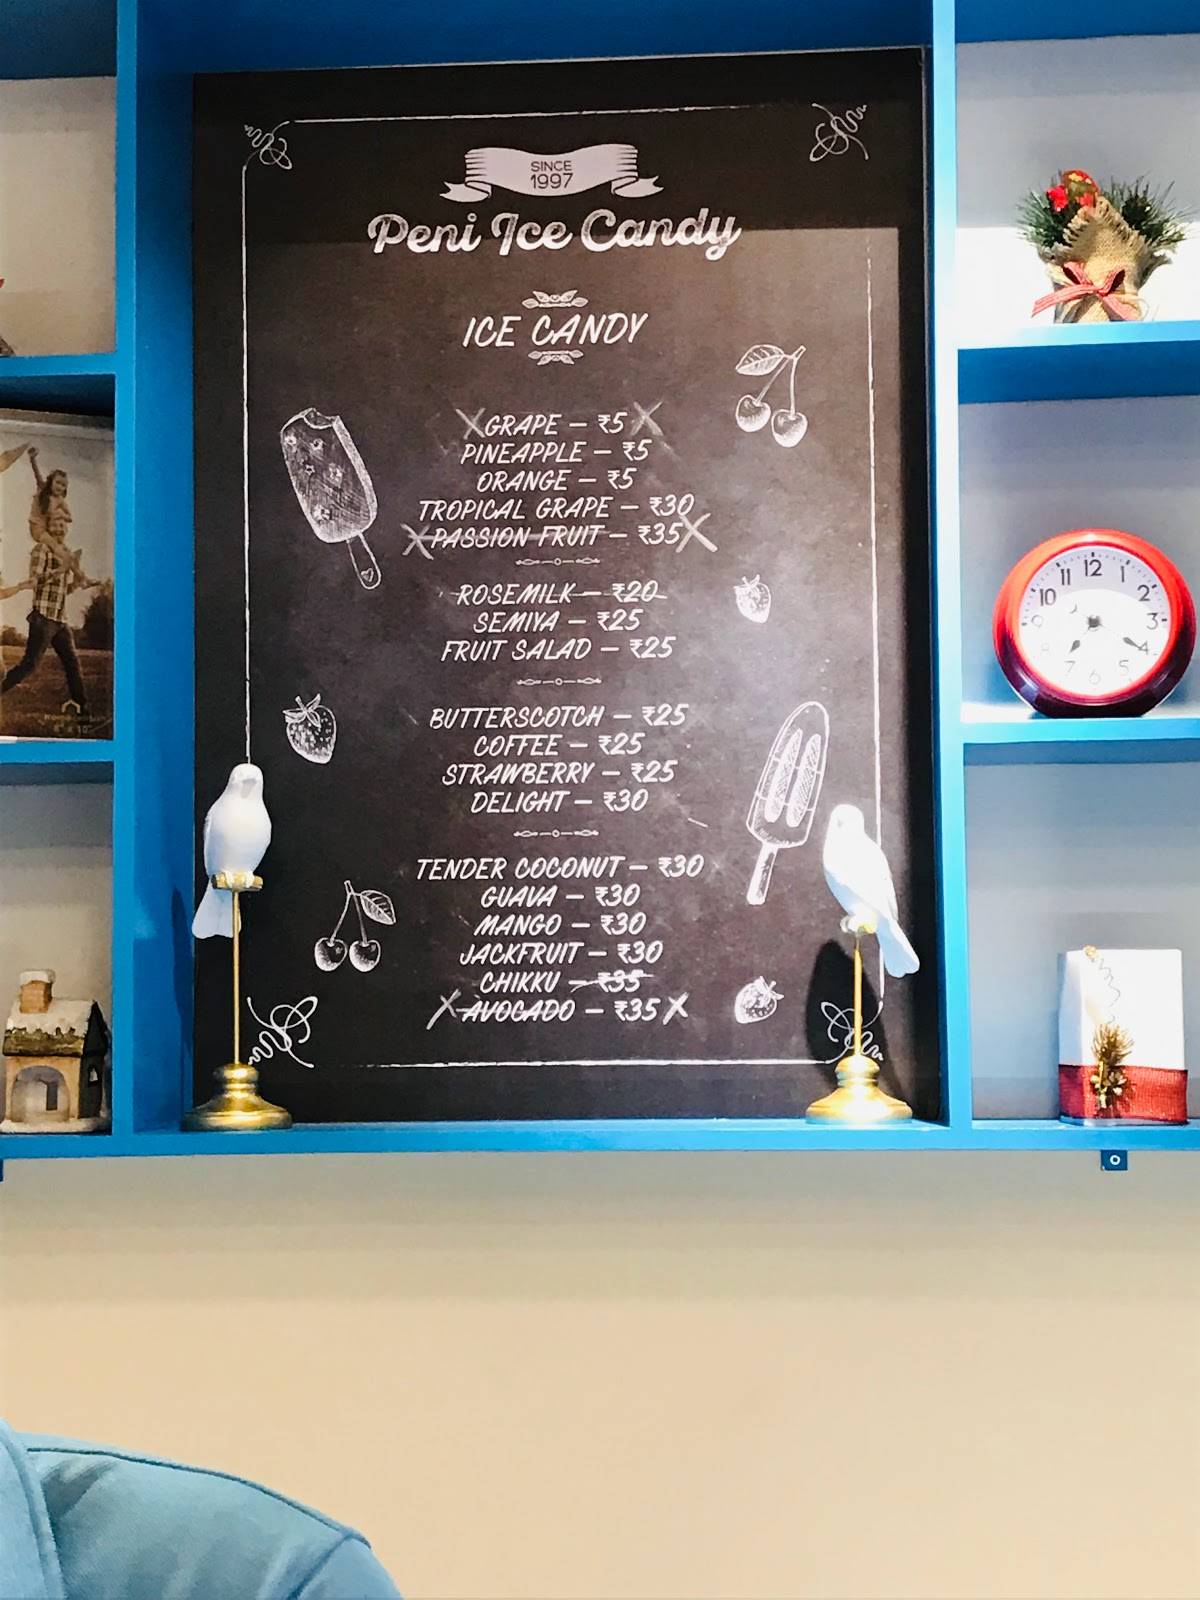 SINCE
1997
Peni Ice Candy
ICE CANDY
GRAPE — ₹5
PINEAPPLE — ₹5
ORANGE — ₹5
TROPICAL GRAPE — ₹30
PASSION FRUIT — ₹35
ROSEMILK — ₹20
SEMIYA — ₹25
FRUIT SALAD — ₹25
BUTTERSCOTCH — ₹25
COFFEE — ₹25
STRAWBERRY — ₹25
DELIGHT — ₹30
TENDER COCONUT — ₹30
GUAVA — ₹30
MANGO — ₹30
JACKFRUIT — ₹30
CHIKKU — ₹35
AVOCADO — ₹35
12
11 1
10 2
9 3
8 4
7 5
6